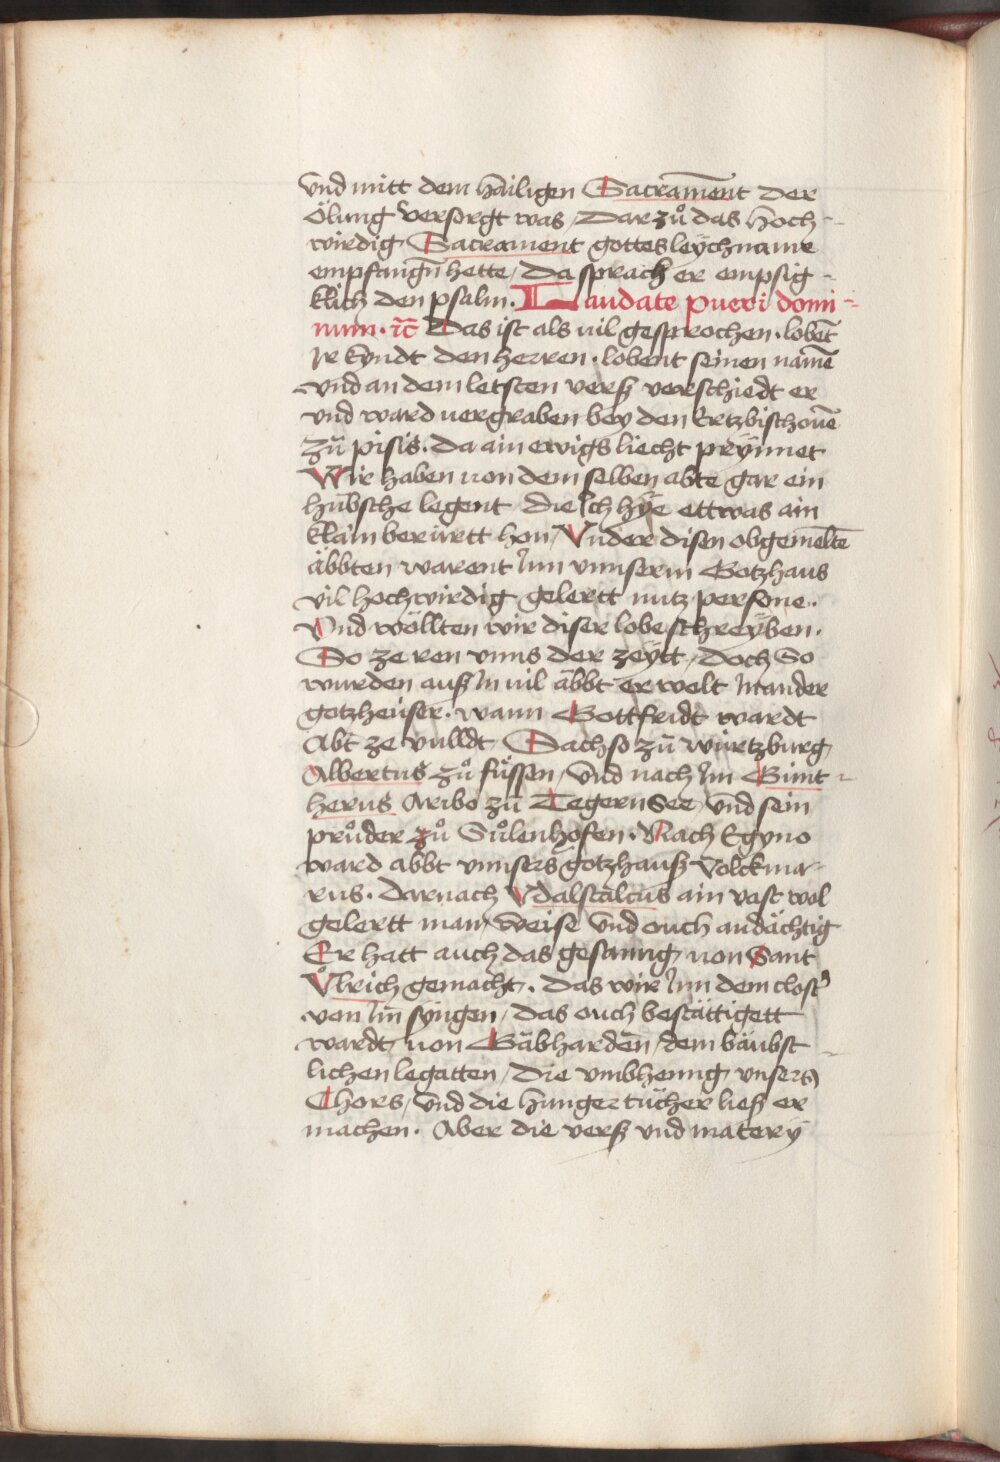 Vnd mitt dem hailigen Sacrament der
Ölung versorgt was / Dar zů das hoch-
wirdig Sacrament gottes leychname
empfangn̄ hette / Da sprach er empsig-
klich den psalm. Laudate pueri domi-
num. ꝛc̄ Das ist als uil gesprochen. lobet̄
Jr kyndt den herren. lobent seinen namē
vnd an dem letsten verß verschiedt er
vnd ward uergraben bey den Ertzbischouē
zů pisis. da ain ewigs liecht prÿnnet
Wir haben von dem selben abte gar ein
hubsche legent die Ich hÿe ettwas ain
klain berürtt hon / Vnder disen obgemeltē
äbbten warent Jnn vnnserm Gotzhaus
vil hochwirdig gelertt nutz persone.
Vnd wöllten wir diser lobe schreÿben.
So ze ren vnns der zeÿtt / doch So
wurden auß Jn uil äbbt erwelt Jn ander
gotzheüser. wann Gottfridt wardt
Abt ze vulldt Sachso zů würtzburg
Albertus zů füssen / Vnd nach Jm Gunt-
herus Aribo zů Tegernsee / vnd sein
průder zů Sůlenhofen. Nach Egyno
ward abbt vnnsers gotzhauß Volckma-
rus. darnach Vdalscalcus ain vast wol
gelertt man / weise vnd ouch andächtig
Er hatt auch das gesanng von Sant
Vͦlrich gemacht. das wir Jnn dem clost᷑
von Jm̄ syngen / das ouch bestättigett
wardt von Gäbharden / dem bäubst-
lichen legatten / die vmbhenng vnsers
Chors / vnd die hungertücher ließ er
machen. Aber die verß vnd materÿ